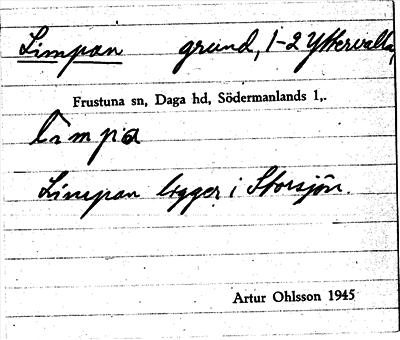 Limpan grund, 1-2 Yttervalla,
Frustuna sn, Daga hd, Södermanlands l,.
lìmpa
Limpan ligger i Storsjön.
Artur Ohlsson 1945